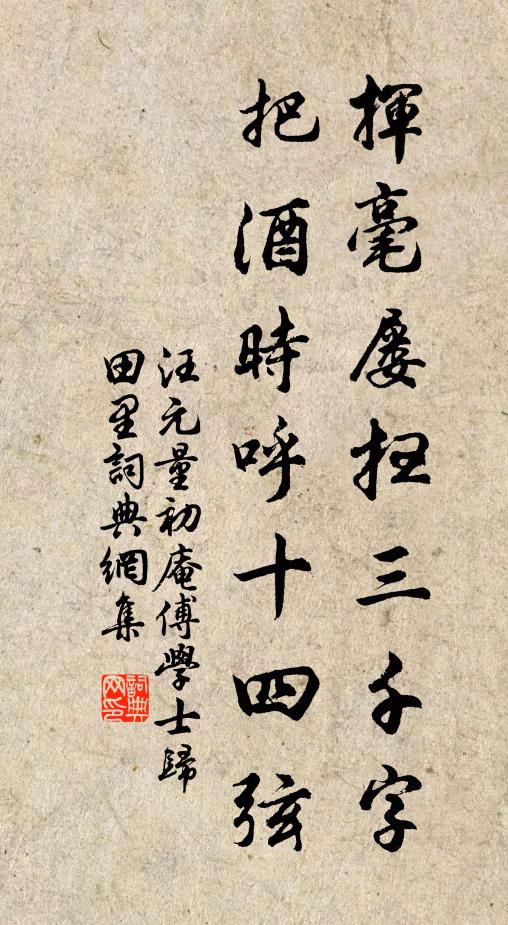 揮毫屢扫三千字
把酒時呼十四弦
汪元量初庵傅學士歸
田里詞典網集
詞典
网印